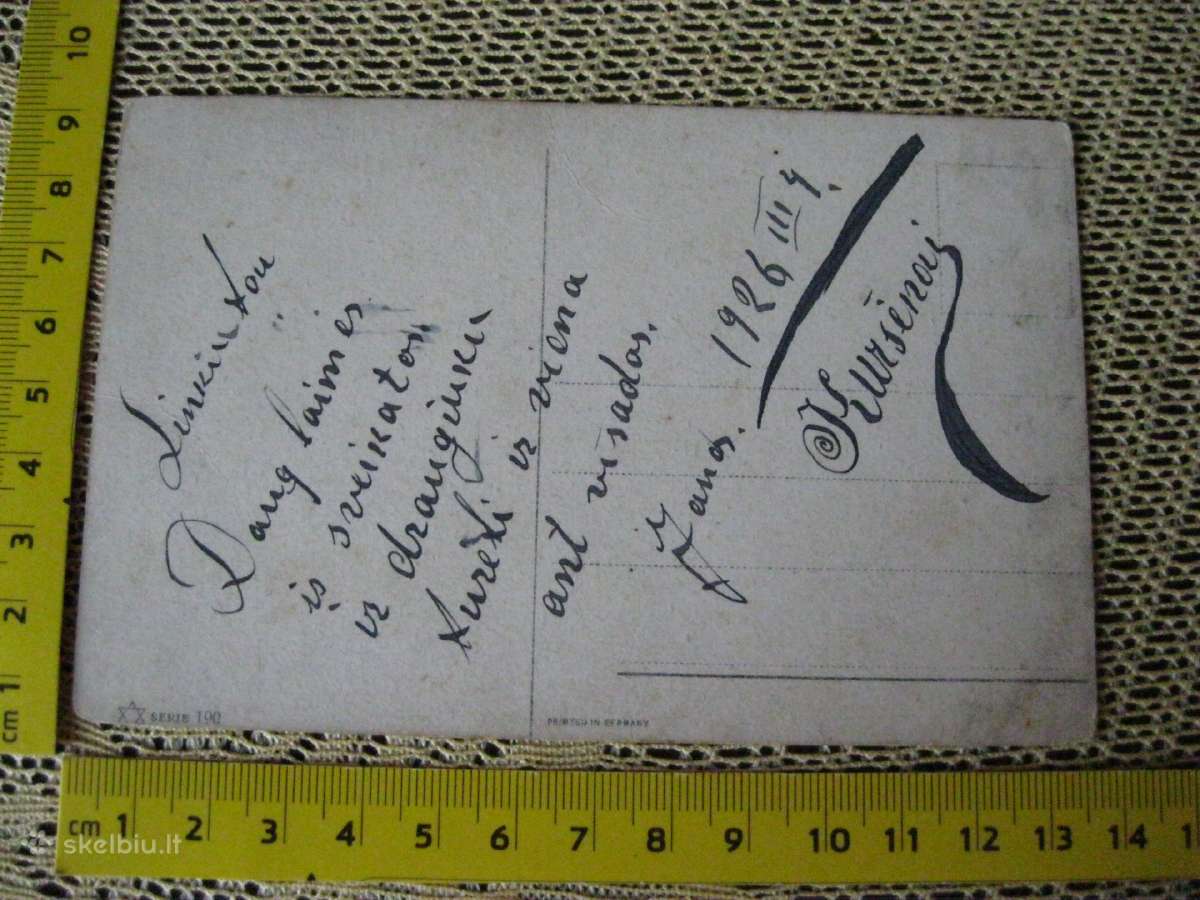 Linkiu tau
Daug laimės
iš sveikatos
ir draugiuku
turėti ir viena
ant visados.
Zanas.
1926 III 4.
Kuršėnai
SERIE 190
PRINTED IN GERMANY
cm 1 2 3 4 5 6 7 8 9 10
cm 1 2 3 4 5 6 7 8 9 10 11 12 13 14 15
skelbiu.lt